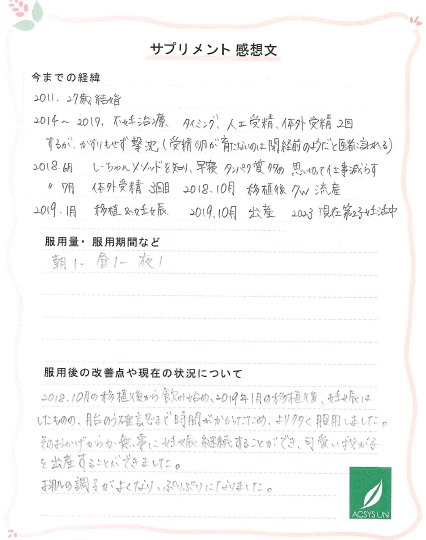 サプリメント感想文
今までの経緯
2011. 27歳結婚
2014～2019. 不妊治療、タイミング、人工受精、体外受精2回
するが、かすりもせず撃沈(受精卵が育たないのは閉経前のようだと医者に言われる)
2018.6月 しーちゃんメソッドを知り、早寝 タンパク質 思い切って仕事減らす
〃 7月 体外受精 3回目 2018.10月 移植後7W 流産
2019.1月 移植 妊娠 2019.10月 出産 2023 現在第2子妊活中
服用量・服用期間など
朝1-昼1-夜1
服用後の改善点や現在の状況について
2018.10月の移植後から飲み始め、2019年1月の移植後、妊娠は
したものの、胎のう確認まで時間がかかったため、より多く服用しました。
そのおかげからか無事に妊娠継続することができ、可愛い我が子
を出産することができました。
お肌の調子がよくなり、ぷりぷりになりました。
ACSYS UN